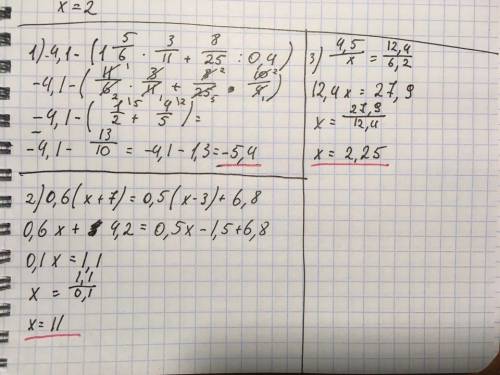 x = 2
1) 4,1 - (1 5/6 · 3/11 + 8/25 : 0,4)
-4,1 - (11/6 · 3/11 + 8/25 · 10/4)
-4,1 - (1/2 + 4/5) =
-4,1 - 13/10 = -4,1 - 1,3 = -5,4
2) 0,6(x+7) = 0,5(x-3) + 6,8
0,6x + 4,2 = 0,5x - 1,5 + 6,8
0,1x = 1,1
x = 1,1/0,1
x = 11
3) 4,5/x = 12,4/6,2
12,4x = 27,9
x = 27,9/12,4
x = 2,25